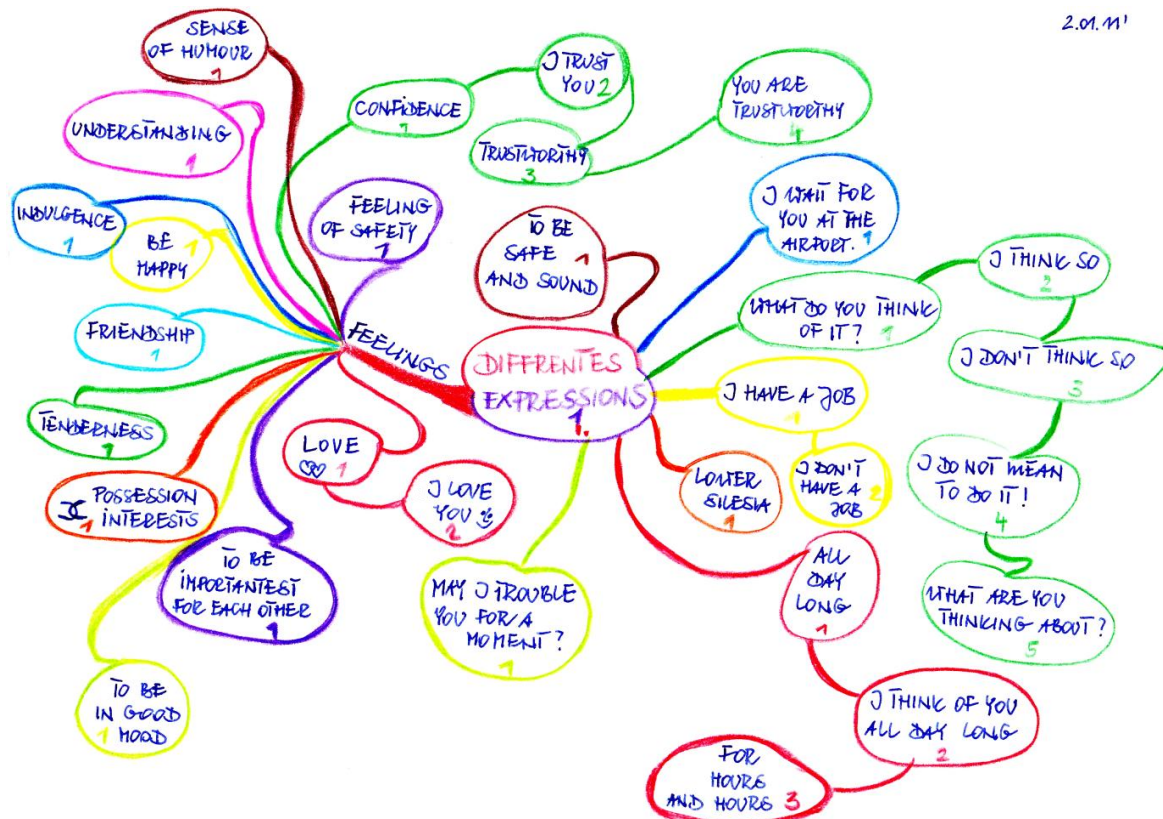 2.01.11'
SENSE
OF HUMOUR
1
UNDERSTANDING
1
INDULGENCE
1
BE 1
HAPPY
FRIENDSHIP
1
TENDERNESS
1
POSSESSION
INTERESTS
1
TO BE
IMPORTANTEST
FOR EACH OTHER
1
TO BE
IN GOOD
1 MOOD
CONFIDENCE
1
I TRUST
YOU 2
TRUSTWORTHY
3
YOU ARE
TRUSTWORTHY
4
FEELING
OF SAFETY
1
FEELINGS
LOVE
1
I LOVE
YOU
2
DIFFRENTES
EXPRESSIONS
1.
TO BE
SAFE 1
AND SOUND
I WAIT FOR
YOU AT THE
AIRPORT. 1
WHAT DO YOU THINK
OF IT? 1
I THINK SO
2
I DON'T THINK SO
3
I DO NOT MEAN
TO DO IT!
4
WHAT ARE YOU
THINKING ABOUT?
5
I HAVE A JOB
1
I DON'T
HAVE A 2
JOB
LOWER
SILESIA
1
ALL
DAY
LONG
1
I THINK OF YOU
ALL DAY LONG
2
FOR
HOURS
AND HOURS 3
MAY I TROUBLE
YOU FOR A
MOMENT?
1